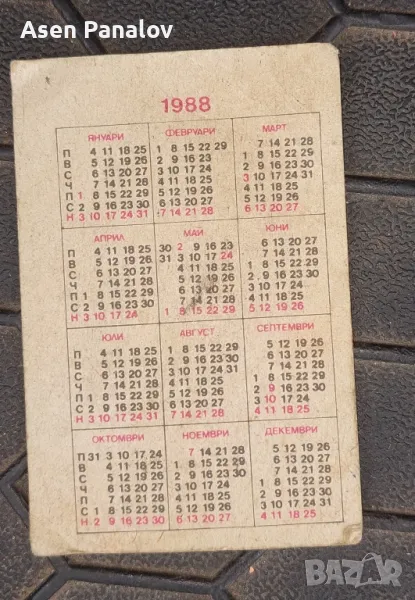 Asen Panalov
1988
ЯНУАРИ ФЕВРУАРИ МАРТ
П 4 11 18 25 1 8 15 22 29 7 14 21 28
В 5 12 19 26 2 9 16 23 1 8 15 22 29
С 6 13 20 27 3 10 17 24 2 9 16 23 30
Ч 7 14 21 28 4 11 18 25 3 10 17 24 31
П 1 8 15 22 29 5 12 19 26 4 11 18 25
С 2 9 16 23 30 6 13 20 27 5 12 19 26
Н 3 10 17 24 31 7 14 21 28 6 13 20 27
АПРИЛ МАЙ ЮНИ
П 4 11 18 25 30 2 9 16 23 6 13 20 27
В 5 12 19 26 31 3 10 17 24 7 14 21 28
С 6 13 20 27 4 11 18 25 1 8 15 22 29
Ч 7 14 21 28 5 12 19 26 2 9 16 23 30
П 1 8 15 22 29 6 13 20 27 3 10 17 24
С 2 9 16 23 30 7 14 21 28 4 11 18 25
Н 3 10 17 24 1 8 15 22 29 5 12 19 26
ЮЛИ АВГУСТ СЕПТЕМВРИ
П 4 11 18 25 1 8 15 22 29 5 12 19 26
В 5 12 19 26 2 9 16 23 30 6 13 20 27
С 6 13 20 27 3 10 17 24 31 7 14 21 28
Ч 7 14 21 28 4 11 18 25 1 8 15 22 29
П 1 8 15 22 29 5 12 19 26 2 9 16 23 30
С 2 9 16 23 30 6 13 20 27 3 10 17 24
Н 3 10 17 24 31 7 14 21 28 4 11 18 25
ОКТОМВРИ НОЕМВРИ ДЕКЕМВРИ
П 31 3 10 17 24 7 14 21 28 5 12 19 26
В 4 11 18 25 1 8 15 22 29 6 13 20 27
С 5 12 19 26 2 9 16 23 30 7 14 21 28
Ч 6 13 20 27 3 10 17 24 1 8 15 22 29
П 7 14 21 28 4 11 18 25 2 9 16 23 30
С 1 8 15 22 29 5 12 19 26 3 10 17 24 31
Н 2 9 16 23 30 6 13 20 27 4 11 18 25
BAZAR
.bg